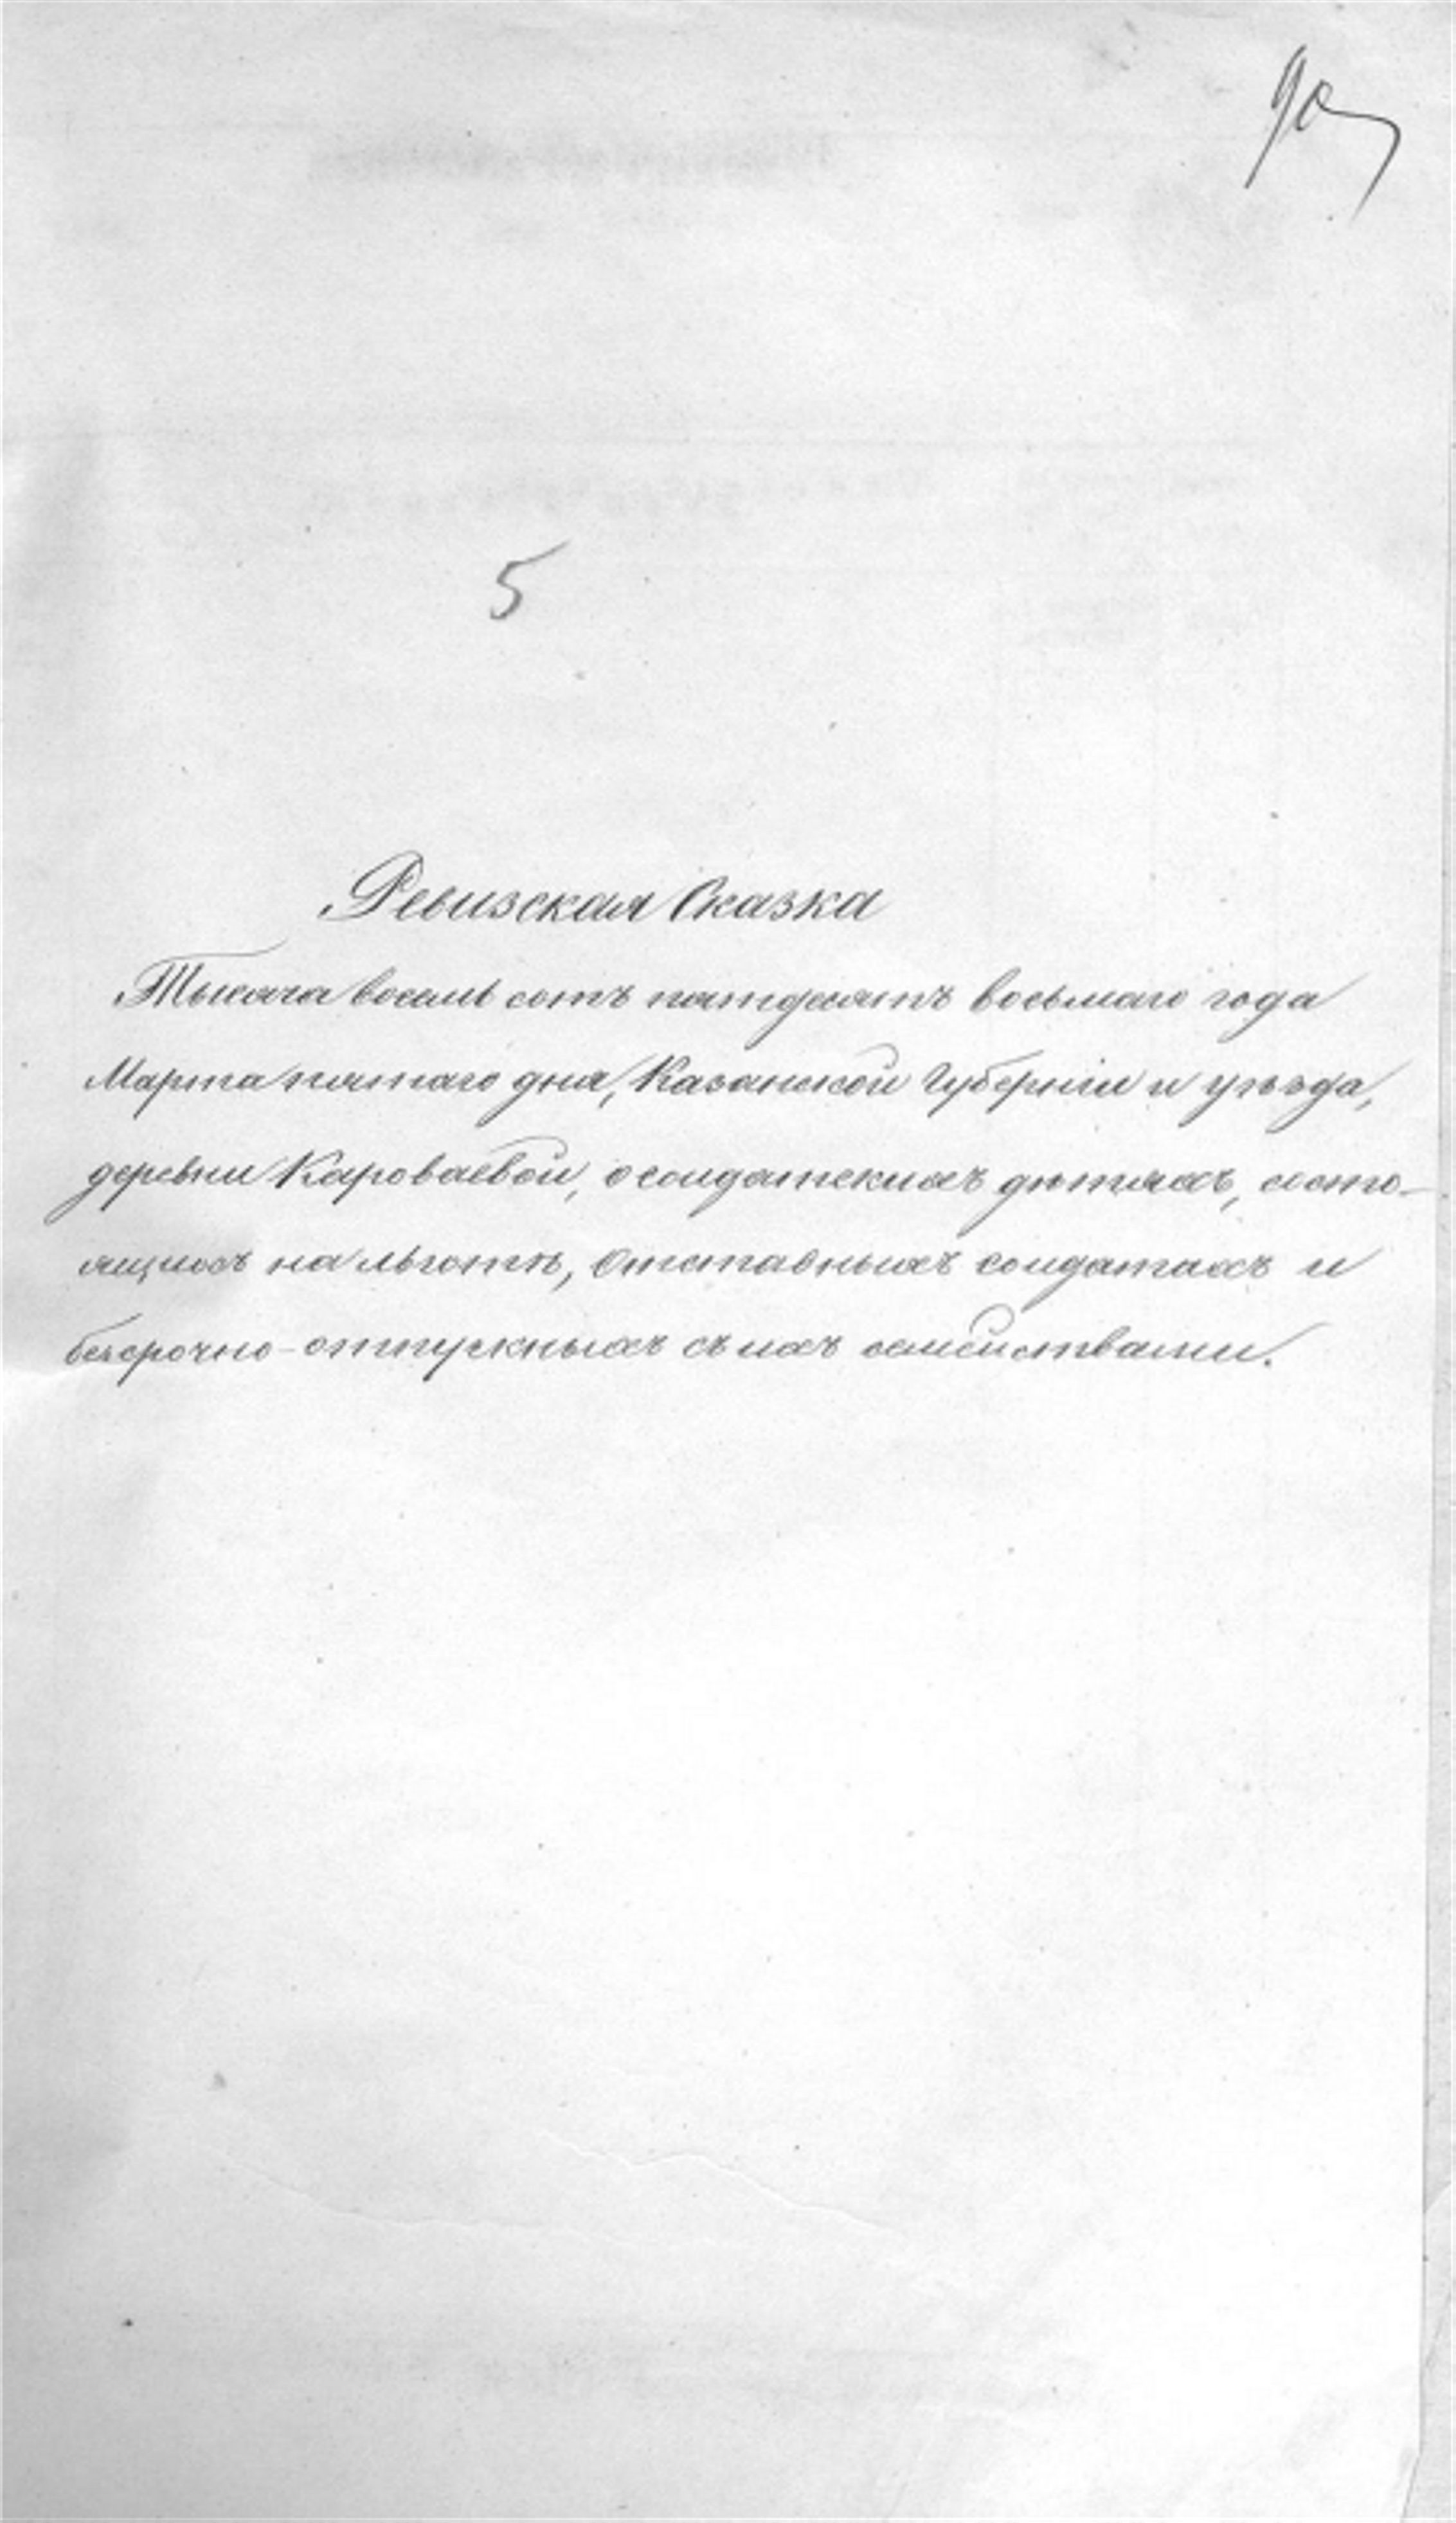 90
5
Ревизская Сказка
Тысяча восемь сотъ пятдесятъ восьмаго года
Марта пятаго дня, Казанской Губерніи и уѣзда,
деревни Кароваевой, о солдатскихъ дѣтяхъ, состо-
ящихъ на льготѣ, отставныхъ солдатахъ и
безсрочно-отпускныхъ съ ихъ семействами.